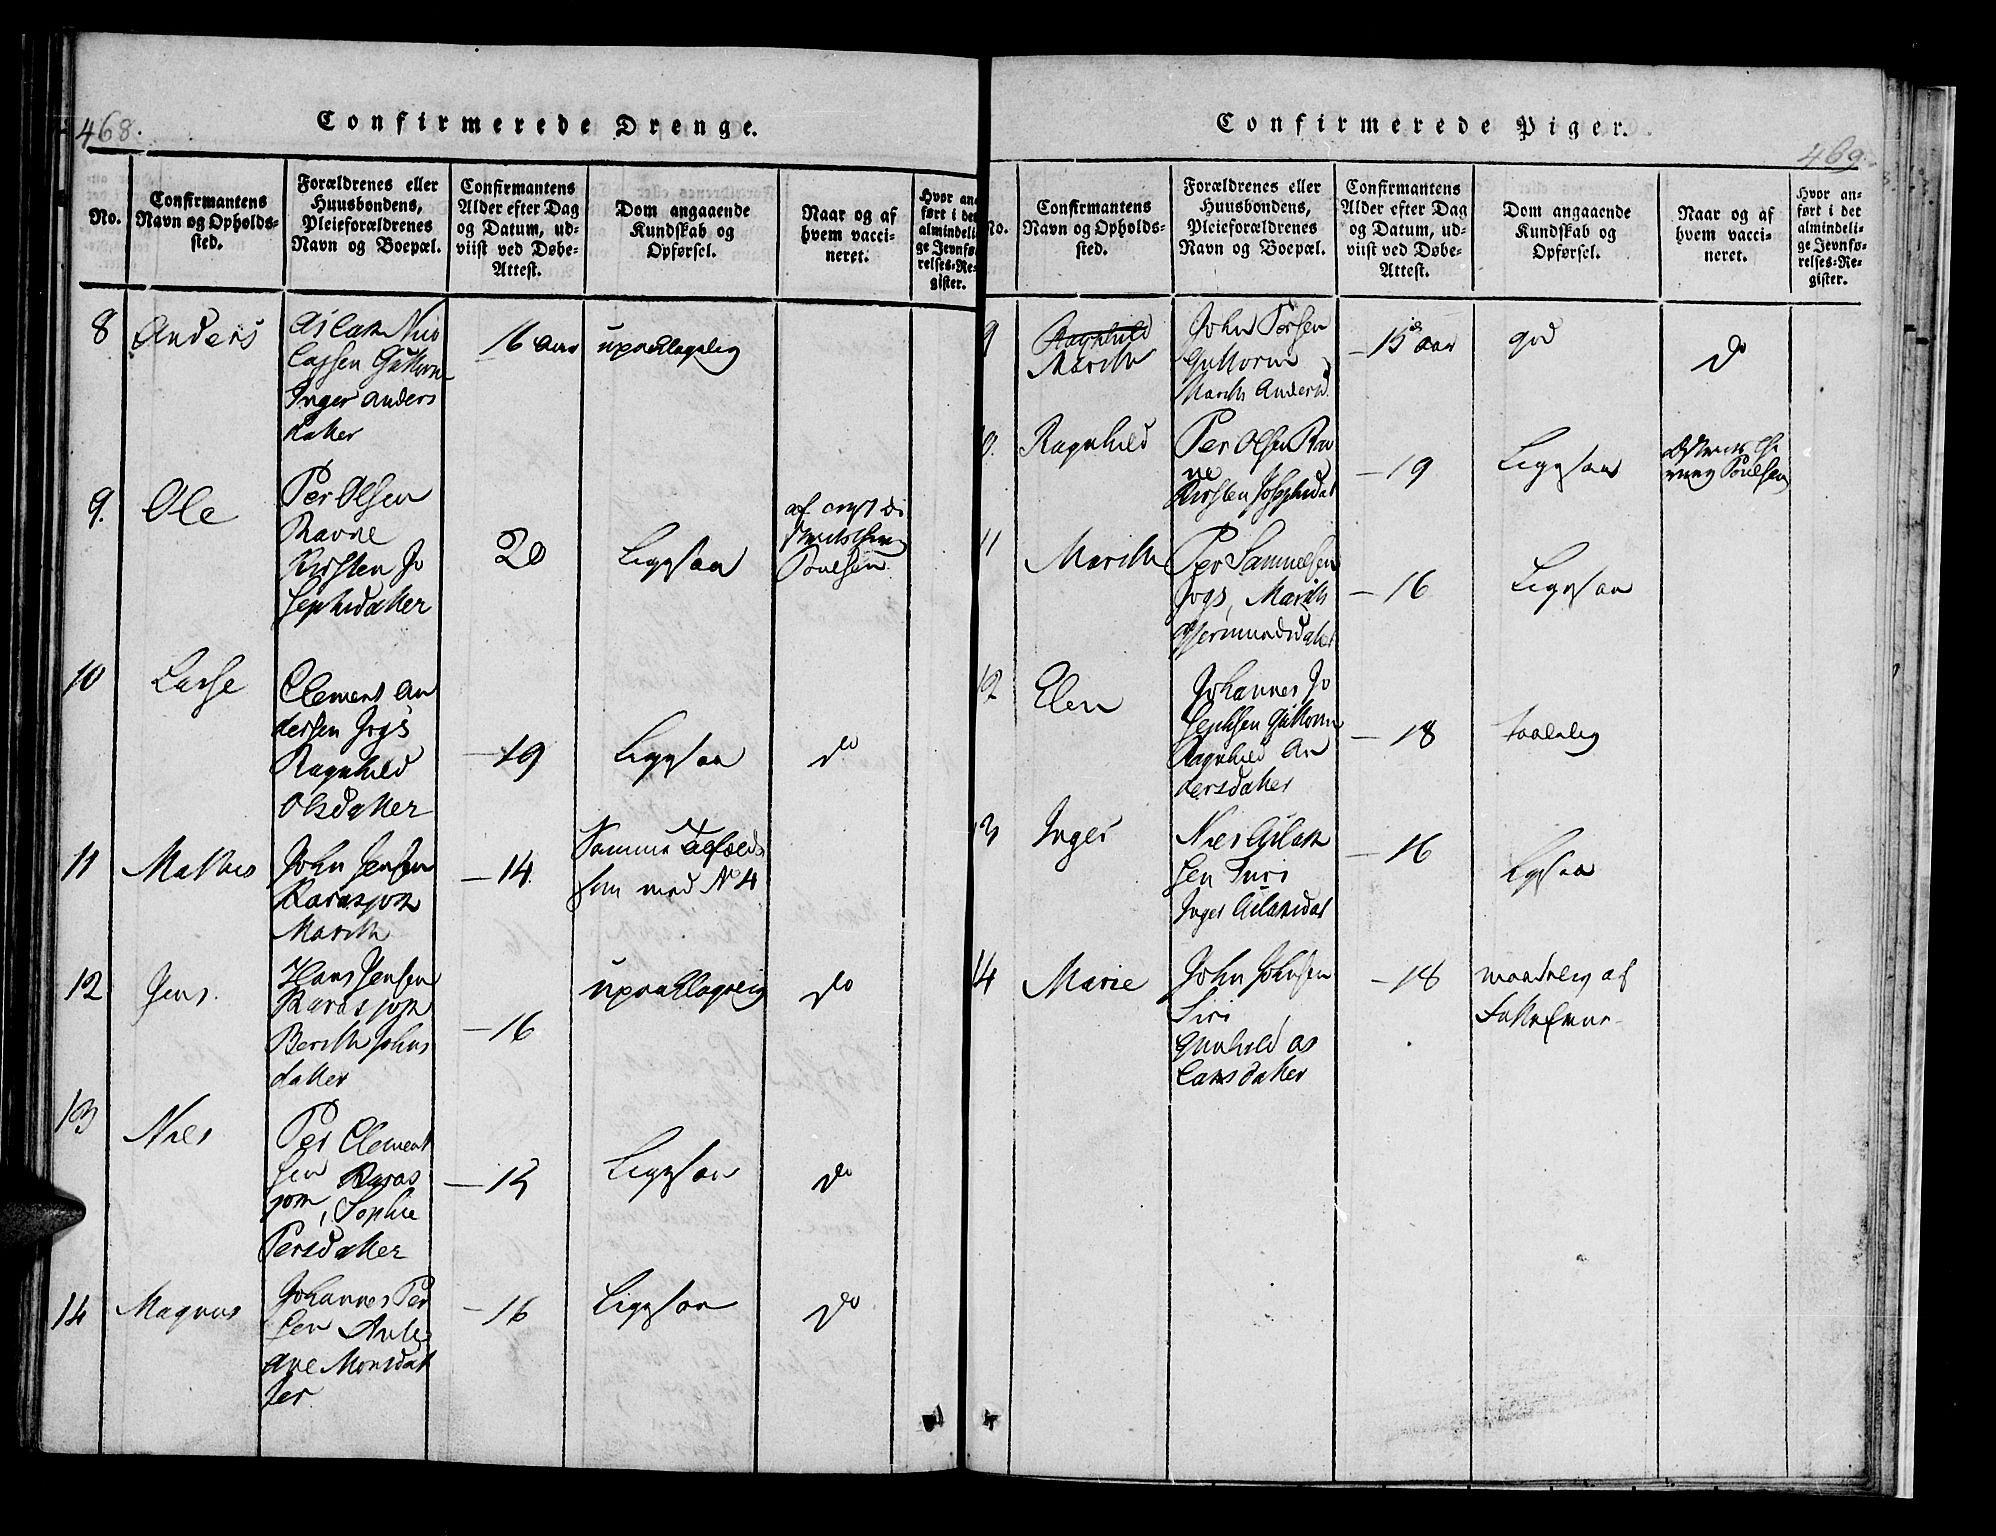 468.
Confirmerede Drenge.
No.
Confirmantens
Navn og Opholds-
sted.
Forældrenes eller
Huusbondens,
Pleieforældrenes
Navn og Boepæl.
Confirmantens
Alder efter Dag
og Datum, ud-
viist ved Døbe-
Attest.
Dom angaaende
Kundskab og
Opførsel.
Naar og af
hvem vacci-
neret.
Hvor an
ført i det
almindeli
ge Jevnfø
relses-Re
gister.
8
Anders
Aslak Nico
lassen Guttorm
Inger Anders
datter
16 Aar
upaaklagelig
9.
Ole
Per Olsen
Ravne
Kirsten Jo
sephsdatter
20
Ligesaa
Poulsen
10
Lasse
Clement An
dersen Jogs
Ragnhild
Olsdatter
19
Ligesaa
do
11
Mathis
John Jensen
Karasjok
Marith
14
med No 4
12
Jens.
Hans Jensen
Karasjok
Berith Johns
datter
16
upaaklagelig
do
13
Niels
Per Clement
sen Karas
jok, Sophie
Persdatter
15
Ligesaa
do
14
Magnus
Johannes Per
sen
Ane Monsdat
ter
16
Ligesaa
do
469.
Confirmerede Piger.
No.
Confirmantens
Navn og Opholds-
sted.
Forældrenes eller
Huusbondens,
Pleieforældrenes
Navn og Boepæl.
Confirmantens
Alder efter Dag
og Datum, ud-
viist ved Døbe-
Attest.
Dom angaaende
Kundskab og
Opførsel.
Naar og af
hvem vacci-
neret.
Hvor an-
ført i det
almindeli-
ge Jevnfø-
relses-Re-
gister.
9
Ragnhild
Marith
John Persen
Guttorm
Marith Andersd
15 Aar
god
do
0.
Ragnhild
Per Olsen Rav
ne
Kirsten Josephsdat
19
Ligesaa
Poulsen
11
Marith
Per Samuelsen
Jogs, Marith
Gjermundsdatter
16
Ligesaa
12
Elen
Johannes Jo
sephsen Guttorm
Ragnhild An
dersdatter
18
taalelig
3
Inger
Niels Aslak
sen Furi
Inger Aslaksdat
16
Ligesaa
14
Marie
John Johnsen
Siri
Gunhild As
laksdatter
18
maadelig af